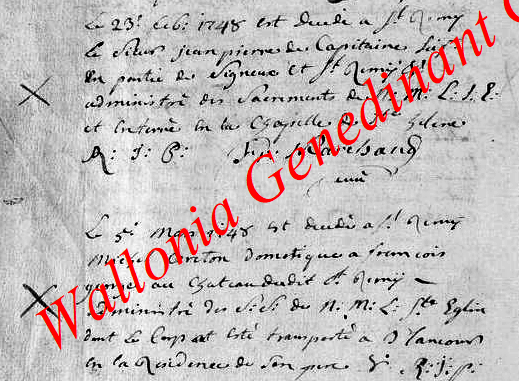 Le 23: feb: 1748 est decedé a St Remy
le Sieur jean pierre de Capitaine
En partie de Signeux et St Remy
administré des Sacrements de N: M: L: S: E:
et Enterré En la Chapelle de Ste helene
R: I: P:
curé
Le 5: Mars 1748 est decedé a St Remy
domestique a francois
au Chateau dudit St Remy
administré des S: S: de N: M: L: Ste Eglise
dont le Corp at esté transporté a
En la Residence de Son pere R: I: P:
Wallonia Genedinant